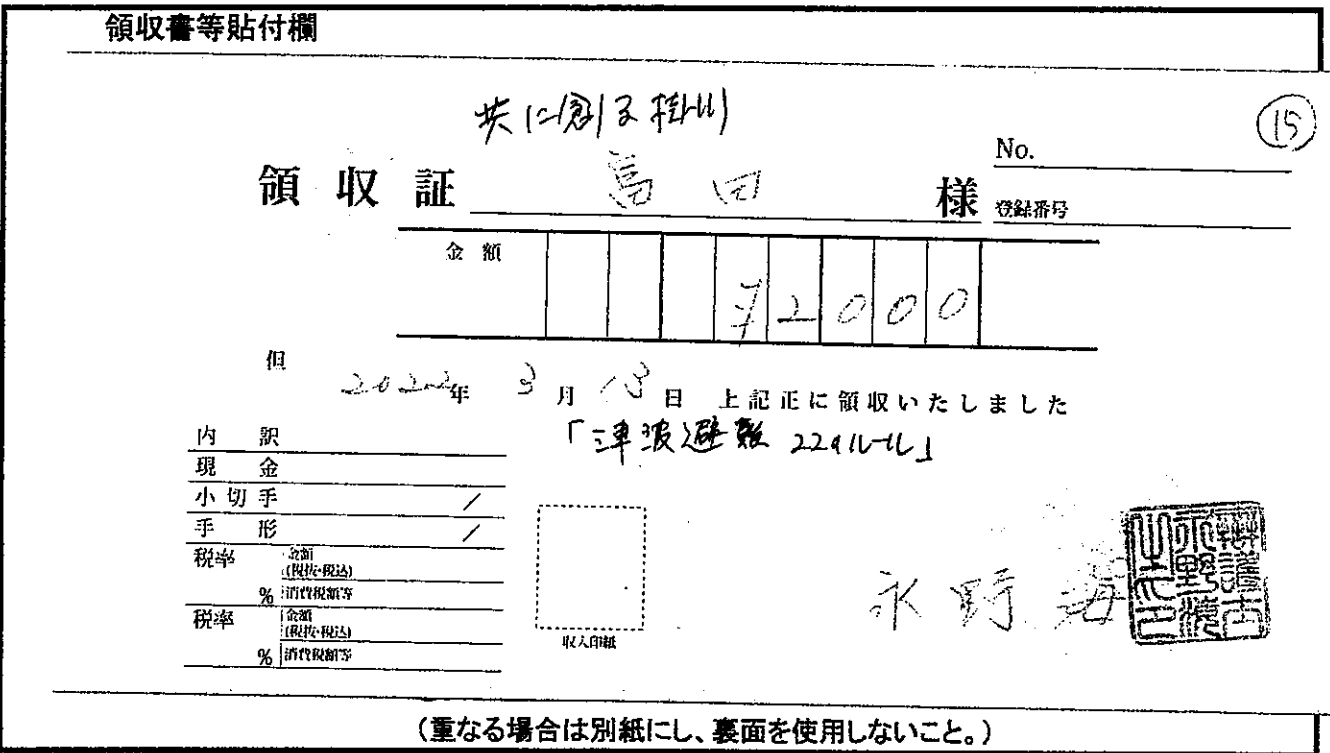 領収書等貼付欄
共に創る掛川
⑮
No.
領収証 高田 様
登録番号
金額 ¥2000
但
2022年 3月13日 上記正に領収いたしました
「津波避難 22のルール」
内訳
現金
小切手 /
手形 /
税率 % 金額(税抜・税込)
消費税額等
税率 % 金額(税抜・税込)
消費税額等
収入印紙
永野 海
辯護士永野海之印
(重なる場合は別紙にし、裏面を使用しないこと。)